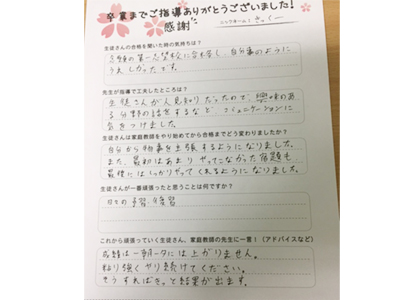 卒業までご指導ありがとうございました!
感謝
ニックネーム:
生徒さんの合格を聞いた時の気持ちは?
念願の第一志望校に合格し、自分事のように
うれしかったです。
先生が指導で工夫したところは?
生徒さんが人見知りだったので、興味のあ
る分野の話をするなど、コミュニケーションに
気をつけました。
生徒さんは家庭教師をやり始めてから合格までどう変わりましたか?
自分から物事を主張するようになりました。
また、最初はあまりやってこなかった宿題も、
最後にはしっかりやってくれるようになりました。
生徒さんが一番頑張ったと思うことは何ですか?
日々の予習復習
これから頑張っていく生徒さん、家庭教師の先生に一言!(アドバイスなど)
成績は一朝一夕には上がりません。
粘り強くやり続けてください。
そうすればきっと結果が出ます。